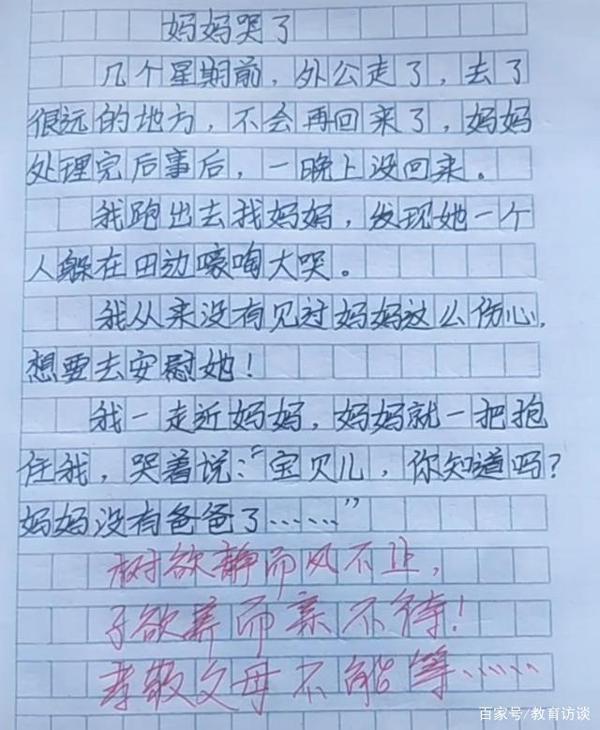 妈妈哭了
几个星期前，外公走了，去了
很远的地方，不会再回来了，妈妈
处理完后事后，一晚上没回来。
我跑出去找妈妈，发现她一个
人躲在田边嚎啕大哭。
我从来没有见过妈妈这么伤心，
想要去安慰她！
我一走近妈妈，妈妈就一把抱
住我，哭着说：“宝贝儿，你知道吗？
妈妈没有爸爸了……”
树欲静而风不止，
子欲养而亲不待！
孝敬父母不能等……
百家号/教育访谈